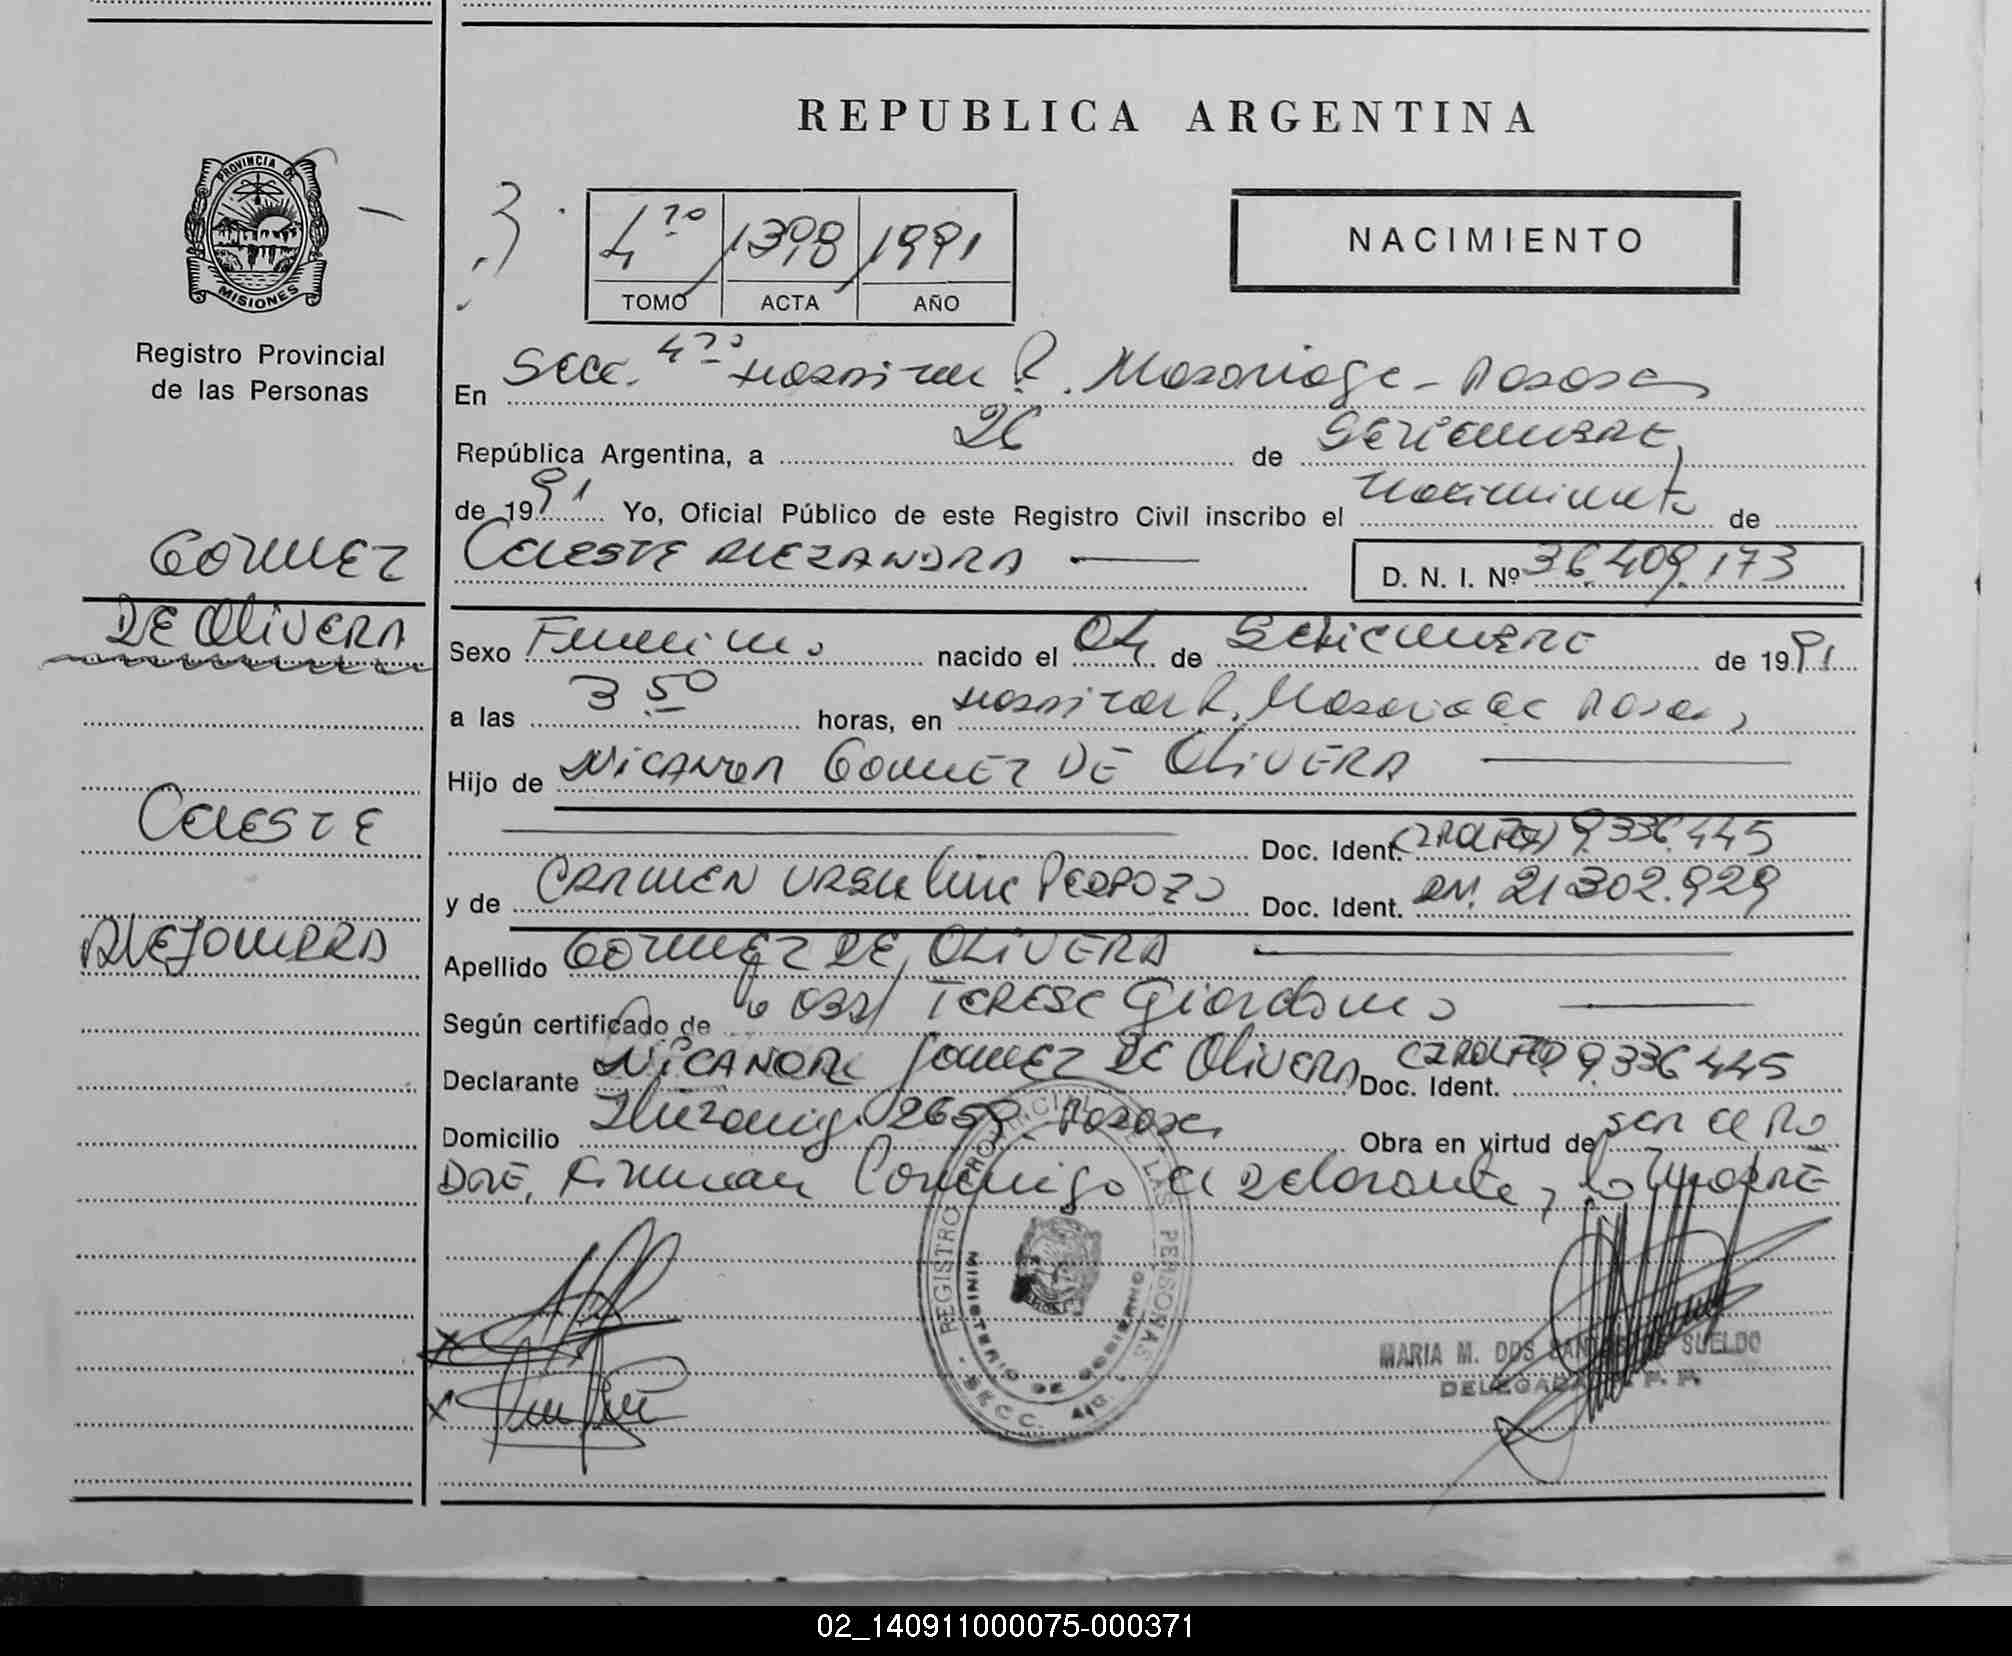 REPUBLICA ARGENTINA
PROVINCIA DE
MISIONES
Registro Provincial
de las Personas
4to 1398 1991
TOMO ACTA AÑO
NACIMIENTO
En Secc. 4ta Hospital R. Madariaga - Posadas
República Argentina, a 26 de SETIEMBRE
de 1991 Yo, Oficial Público de este Registro Civil inscribo el nacimiento de
CELESTE ALEJANDRA D. N. I. Nº 36.409.173
GOMEZ
DE OLIVERA
CELESTE
ALEJANDRA
Sexo Femenino nacido el 04 de SETIEMBRE de 1991
a las 3 50 horas, en Hospital R. Madariaga Posadas
Hijo de NICANOR GOMEZ DE OLIVERA
Doc. Ident. 9.336.445
y de CARMEN URSULINA PEDROZO Doc. Ident. DNI. 21.302.929
Apellido GOMEZ DE OLIVERA
Según certificado de TERESA Giordano
Declarante NICANOR GOMEZ DE OLIVERA Doc. Ident. 9.336.445
Domicilio 2659 Posadas Obra en virtud de ser el PA
DRE, Firman Conmigo el declarante y la MADRE
REGISTRO PROVINCIAL DE LAS PERSONAS
MINISTERIO DE GOBIERNO
SECC. 4ta.
MARIA M. DOS SANTOS DE SUELDO
DELEGADA R. P. P.
02_140911000075-000371